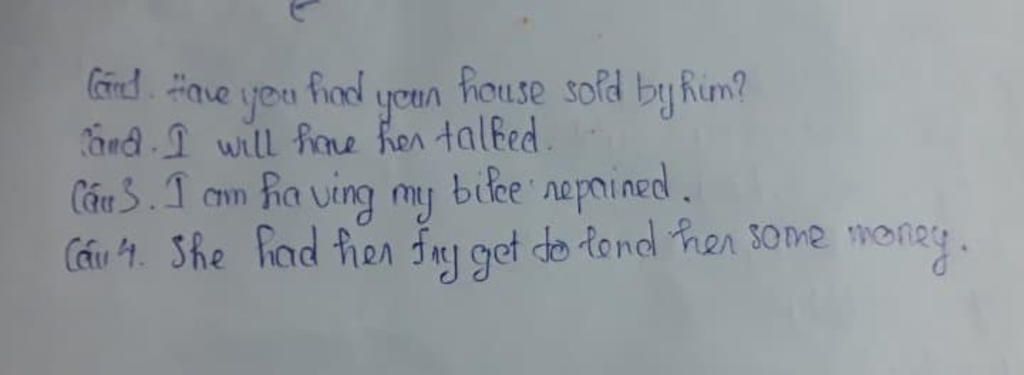 Câu 1. Have you had your house sold by him?
Câu 2. I will have her talked.
Câu 3. I am having my bike repaired.
Câu 4. She had her try get to lend her some money.